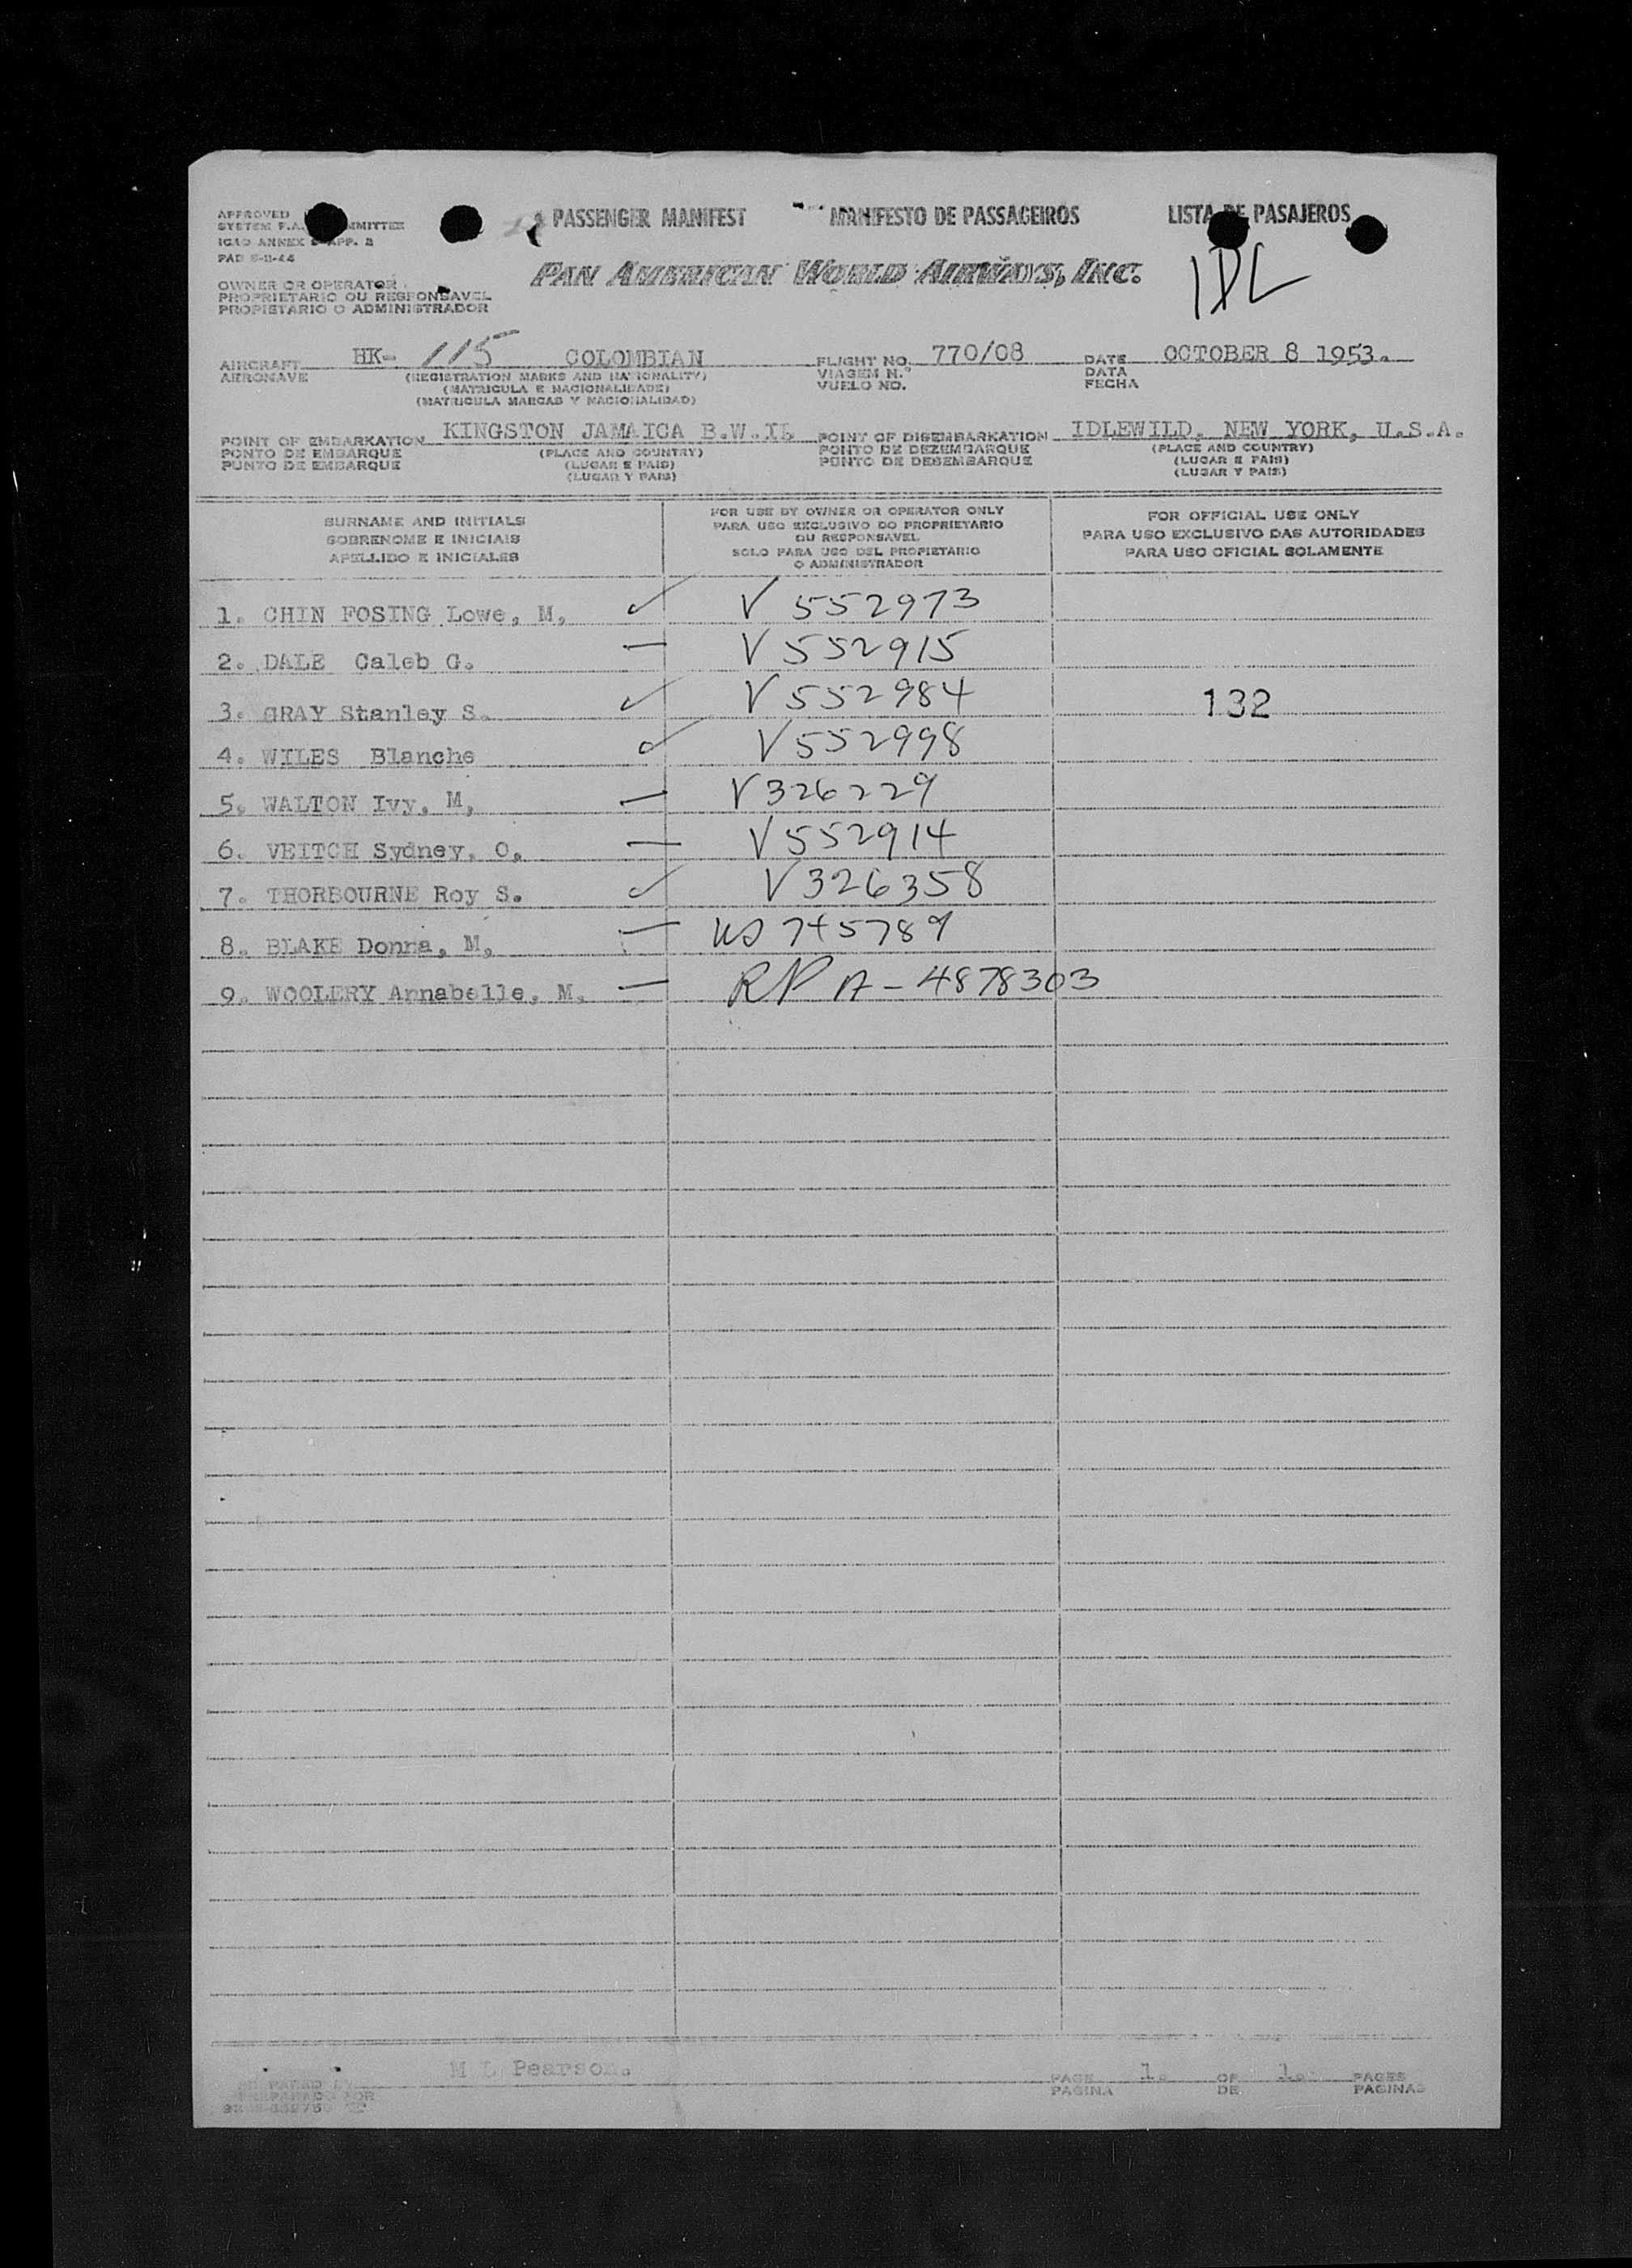 APPROVED
SYSTEM F.A. MMITTEE
ICAO ANNEX APP. 2
PASSENGER MANIFEST MANIFESTO DE PASSAGEIROS LISTA DE PASAJEROS
PAN AMERICAN WORLD AIRWAYS, INC.
IDL
OWNER OR OPERATOR
PROPRIETARIO OU RESPONSAVEL
PROPIETARIO O ADMINISTRADOR
AIRCRAFT HK- 115 COLOMBIAN FLIGHT NO. 770/08 DATE OCTOBER 8 1953.
AERONAVE (REGISTRATION MARKS AND NATIONALITY) VIAGEM N.º DATA
(MATRICULA E NACIONALIDADE) VUELO NO. FECHA
(MATRICULA MARCAS Y NACIONALIDAD)
POINT OF EMBARKATION KINGSTON JAMAICA B.W.I. POINT OF DISEMBARKATION IDLEWILD, NEW YORK, U.S.A.
PONTO DE EMBARQUE (PLACE AND COUNTRY) PONTO DE DEZEMBARQUE (PLACE AND COUNTRY)
PUNTO DE EMBARQUE (LUGAR E PAIS) PUNTO DE DESEMBARQUE (LUGAR E PAIS)
(LUGAR Y PAIS) (LUGAR Y PAIS)
SURNAME AND INITIALS FOR USE BY OWNER OR OPERATOR ONLY FOR OFFICIAL USE ONLY
SOBRENOME E INICIAIS PARA USO EXCLUSIVO DO PROPRIETARIO PARA USO EXCLUSIVO DAS AUTORIDADES
OU RESPONSAVEL
APELLIDO E INICIALES SOLO PARA USO DEL PROPIETARIO PARA USO OFICIAL SOLAMENTE
O ADMINISTRADOR
1. CHIN FOSING Lowe, M, ✓ V 552973
2. DALE Caleb G. — V 552915
3. GRAY Stanley S. ✓ V 552984 132
4. WILES Blanche ✓ V 552998
5. WALTON Ivy, M, — V 326229
6. VEITCH Sydney, O. — V 552914
7. THORBOURNE Roy S. ✓ V 326358
8. BLAKE Donna, M, — US 745789
9. WOOLERY Annabelle, M. — RP A-4878303
M L Pearson.
PAGE 1. OF 1. PAGES
PAGINA DE PAGINAS